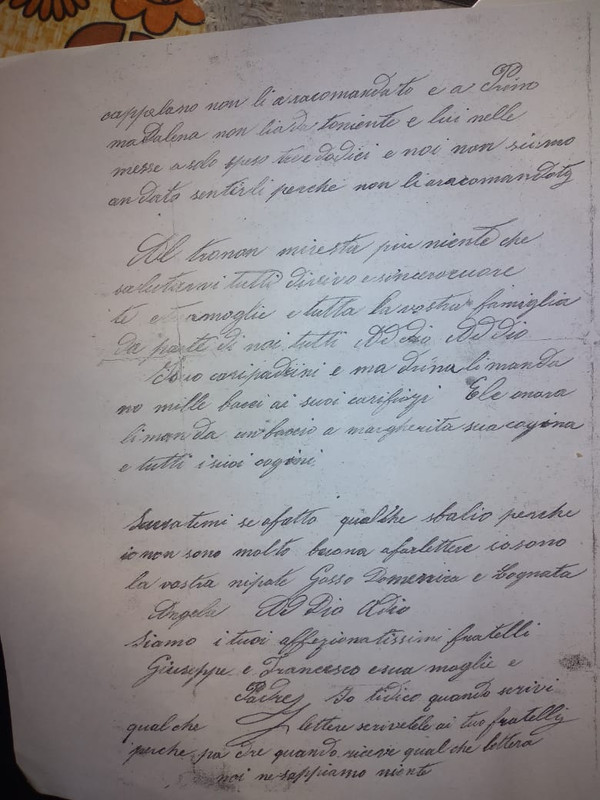 cappelano non li a racomandato e a Primo
madalena non lia da toniente e lui nelle
messe a solo speso tre e dodici e noi non siamo
andato sentirli perche non li aracomandaty
Al tronon miresta piu niente che
salutarvi tutti divivo e sincerocuore
te e tua moglie e tutta la vostra famiglia
Da parte di noi tutti AD dio AD Dio
I suo caripadrini e ma drina li manda
no mille bacci ai suoi carifiozzi Ele onora
li manda un baccio a margherita sua cogina
e tutti i suoi cogini
se afatto qualche sbalio perche
io non sono molto buona a farlettere io sono
la vostra nipate Gosso Domenica e Cognata
Angela AD Dio Adio
Siamo i tuoi affezionatissimi fratelli
Giuseppe e Francesco e sua moglie e
Padre Io tidico quando scrivi
qual che lettere scrivetele ai tuo fratelli
perche pa dre quando riceve qual che lettera
noi ne sappiamo niente